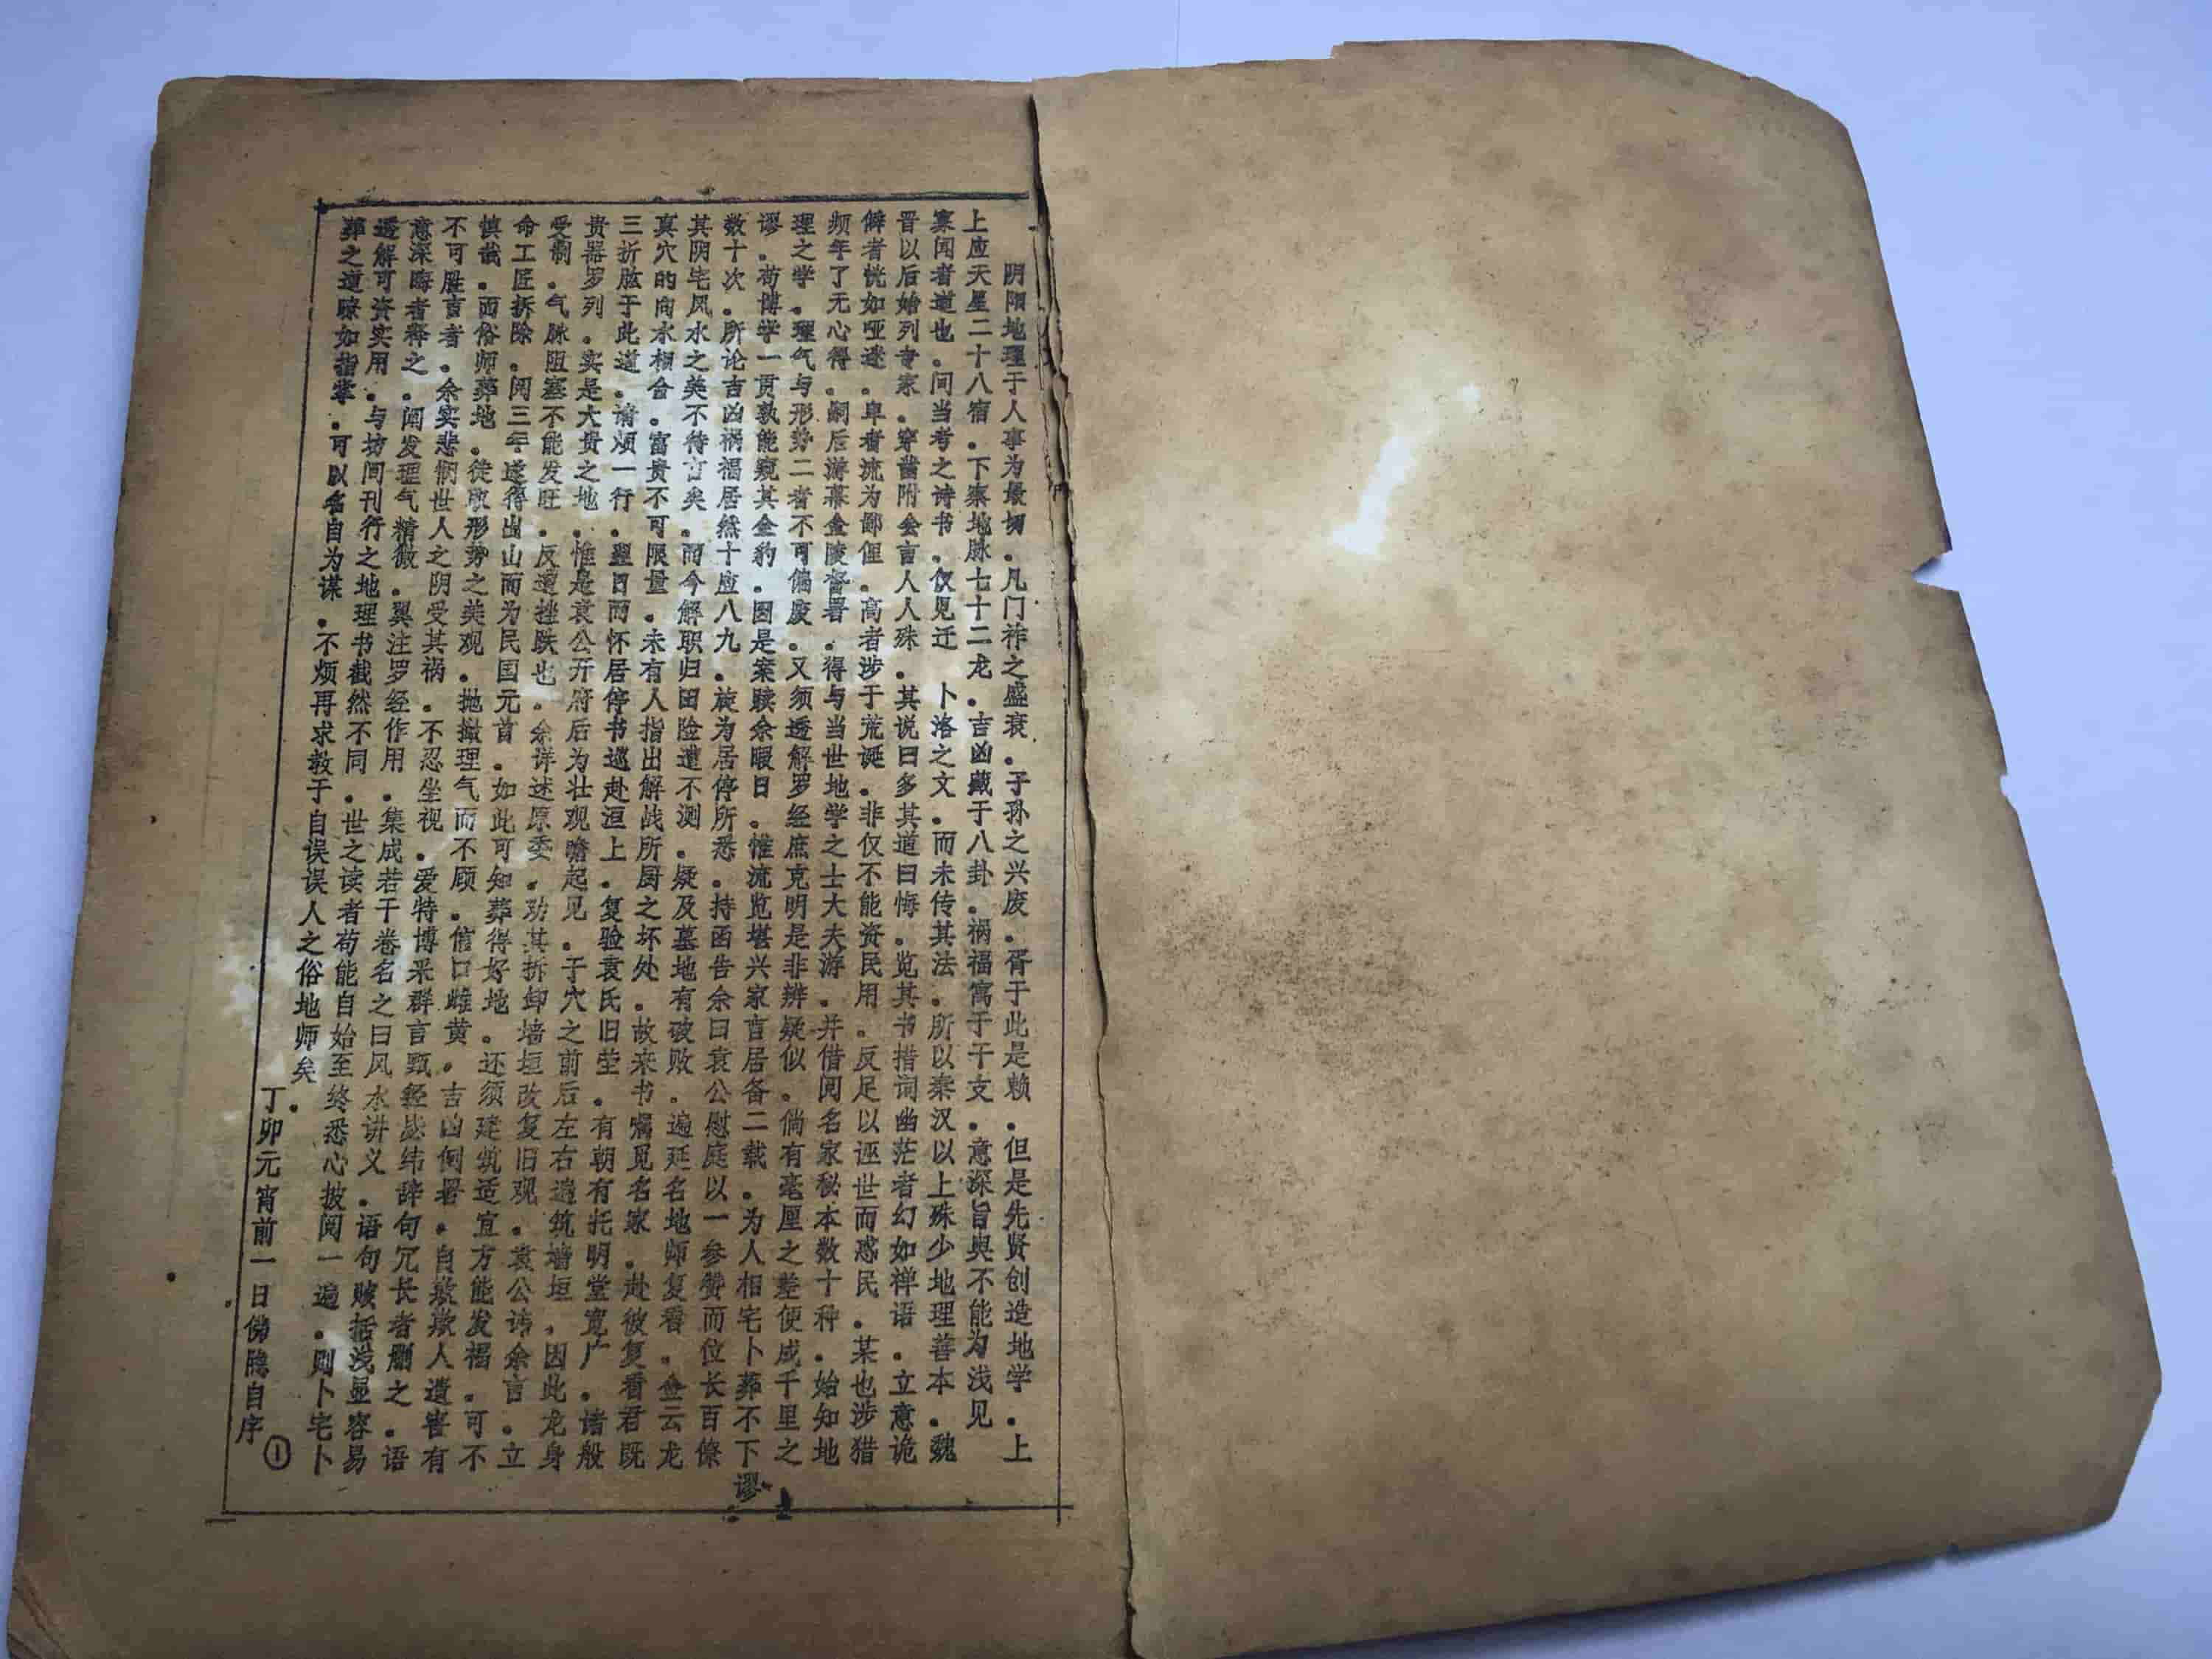 阴阳地理于人事为最切．凡门祚之盛衰．子孙之兴废．胥于此是赖．但是先贤创造地学．上
上应天星二十八宿．下察地脉七十二龙．吉凶藏于八卦．祸福寓于干支．意深旨奥不能为浅见
寡闻者道也．间当考之诗书．仅见迁 卜洛之文．而未传其法．所以秦汉以上殊少地理善本．魏
晋以后始列专家．穿凿附会言人人殊．其说曰多其道曰悔．览其书措词幽茫者幻如禅语．立意诡
僻者恍如哑谜．卑者流为鄙俚．高者涉于荒诞．非仅不能资民用．反足以诬世而惑民．某也涉猎
频年了无心得．嗣后游幕金陵督署．得与当世地学之士大夫游．并借阅名家秘本数十种．始知地
理之学．理气与形势二者不可偏废．又须透解罗经庶克明是非辨疑似．倘有毫厘之差便成千里之
谬．苟博学一贯孰能窥其全豹．因是案牍余暇日．惟流览堪兴家言居备二载．为人相宅卜葬不下
数十次．所论吉凶祸福居然十应八九．旋为居停所悉．持函告余曰袁公慰庭以一参赞而位长百僚
其阴宅风水之美不待言矣．而今解职归田险遭不测．疑及墓地有破败．遍延名地师复看．佥云龙
真穴的向水相合．富贵不可限量．未有人指出解战所厨之坏处．故来书嘱见名家．赴彼复看君既
三折肱于此道．请烦一行．翌日而怀居停书巡赴洹上．复验袁氏旧茔．有朝有托明堂宽广．诸般
贵器罗列．实是大贵之地．惟是袁公开府后为壮观瞻起见．于穴之前后左右遍筑墙垣，因此龙身
受制．气脉阻塞不能发旺．反遭挫跌也．余详述原委．劝其拆卸墙垣改复旧观．袁公讳余言．立
命工匠拆除．阅三年遂得出山而为民国元首．如此可知葬得好地．还须建筑适宜方能发福．可不
慎哉．而俗师葬地．徒取形势之美观．抛撇理气而不顾．信口雌黄．吉凶倒署．自欺欺人遗害有
不可胜言者．余实悲悯世人之阴受其祸．不忍坐视．爱特博采群言甄经毖纬辞句冗长者删之．语
意深晦者释之．阐发理气精微．翼注罗经作用．集成若干卷名之曰风水讲义．语句赅括浅显容易
透解可资实用．与坊间刊行之地理书截然不同．世之读者苟能自始至终悉心披阅一遍．则卜宅卜
葬之道瞭如指掌．可以名自为谋．不烦再求教于自误误人之俗地师矣．
丁卯元宵前一日佛隐自序
①
谬